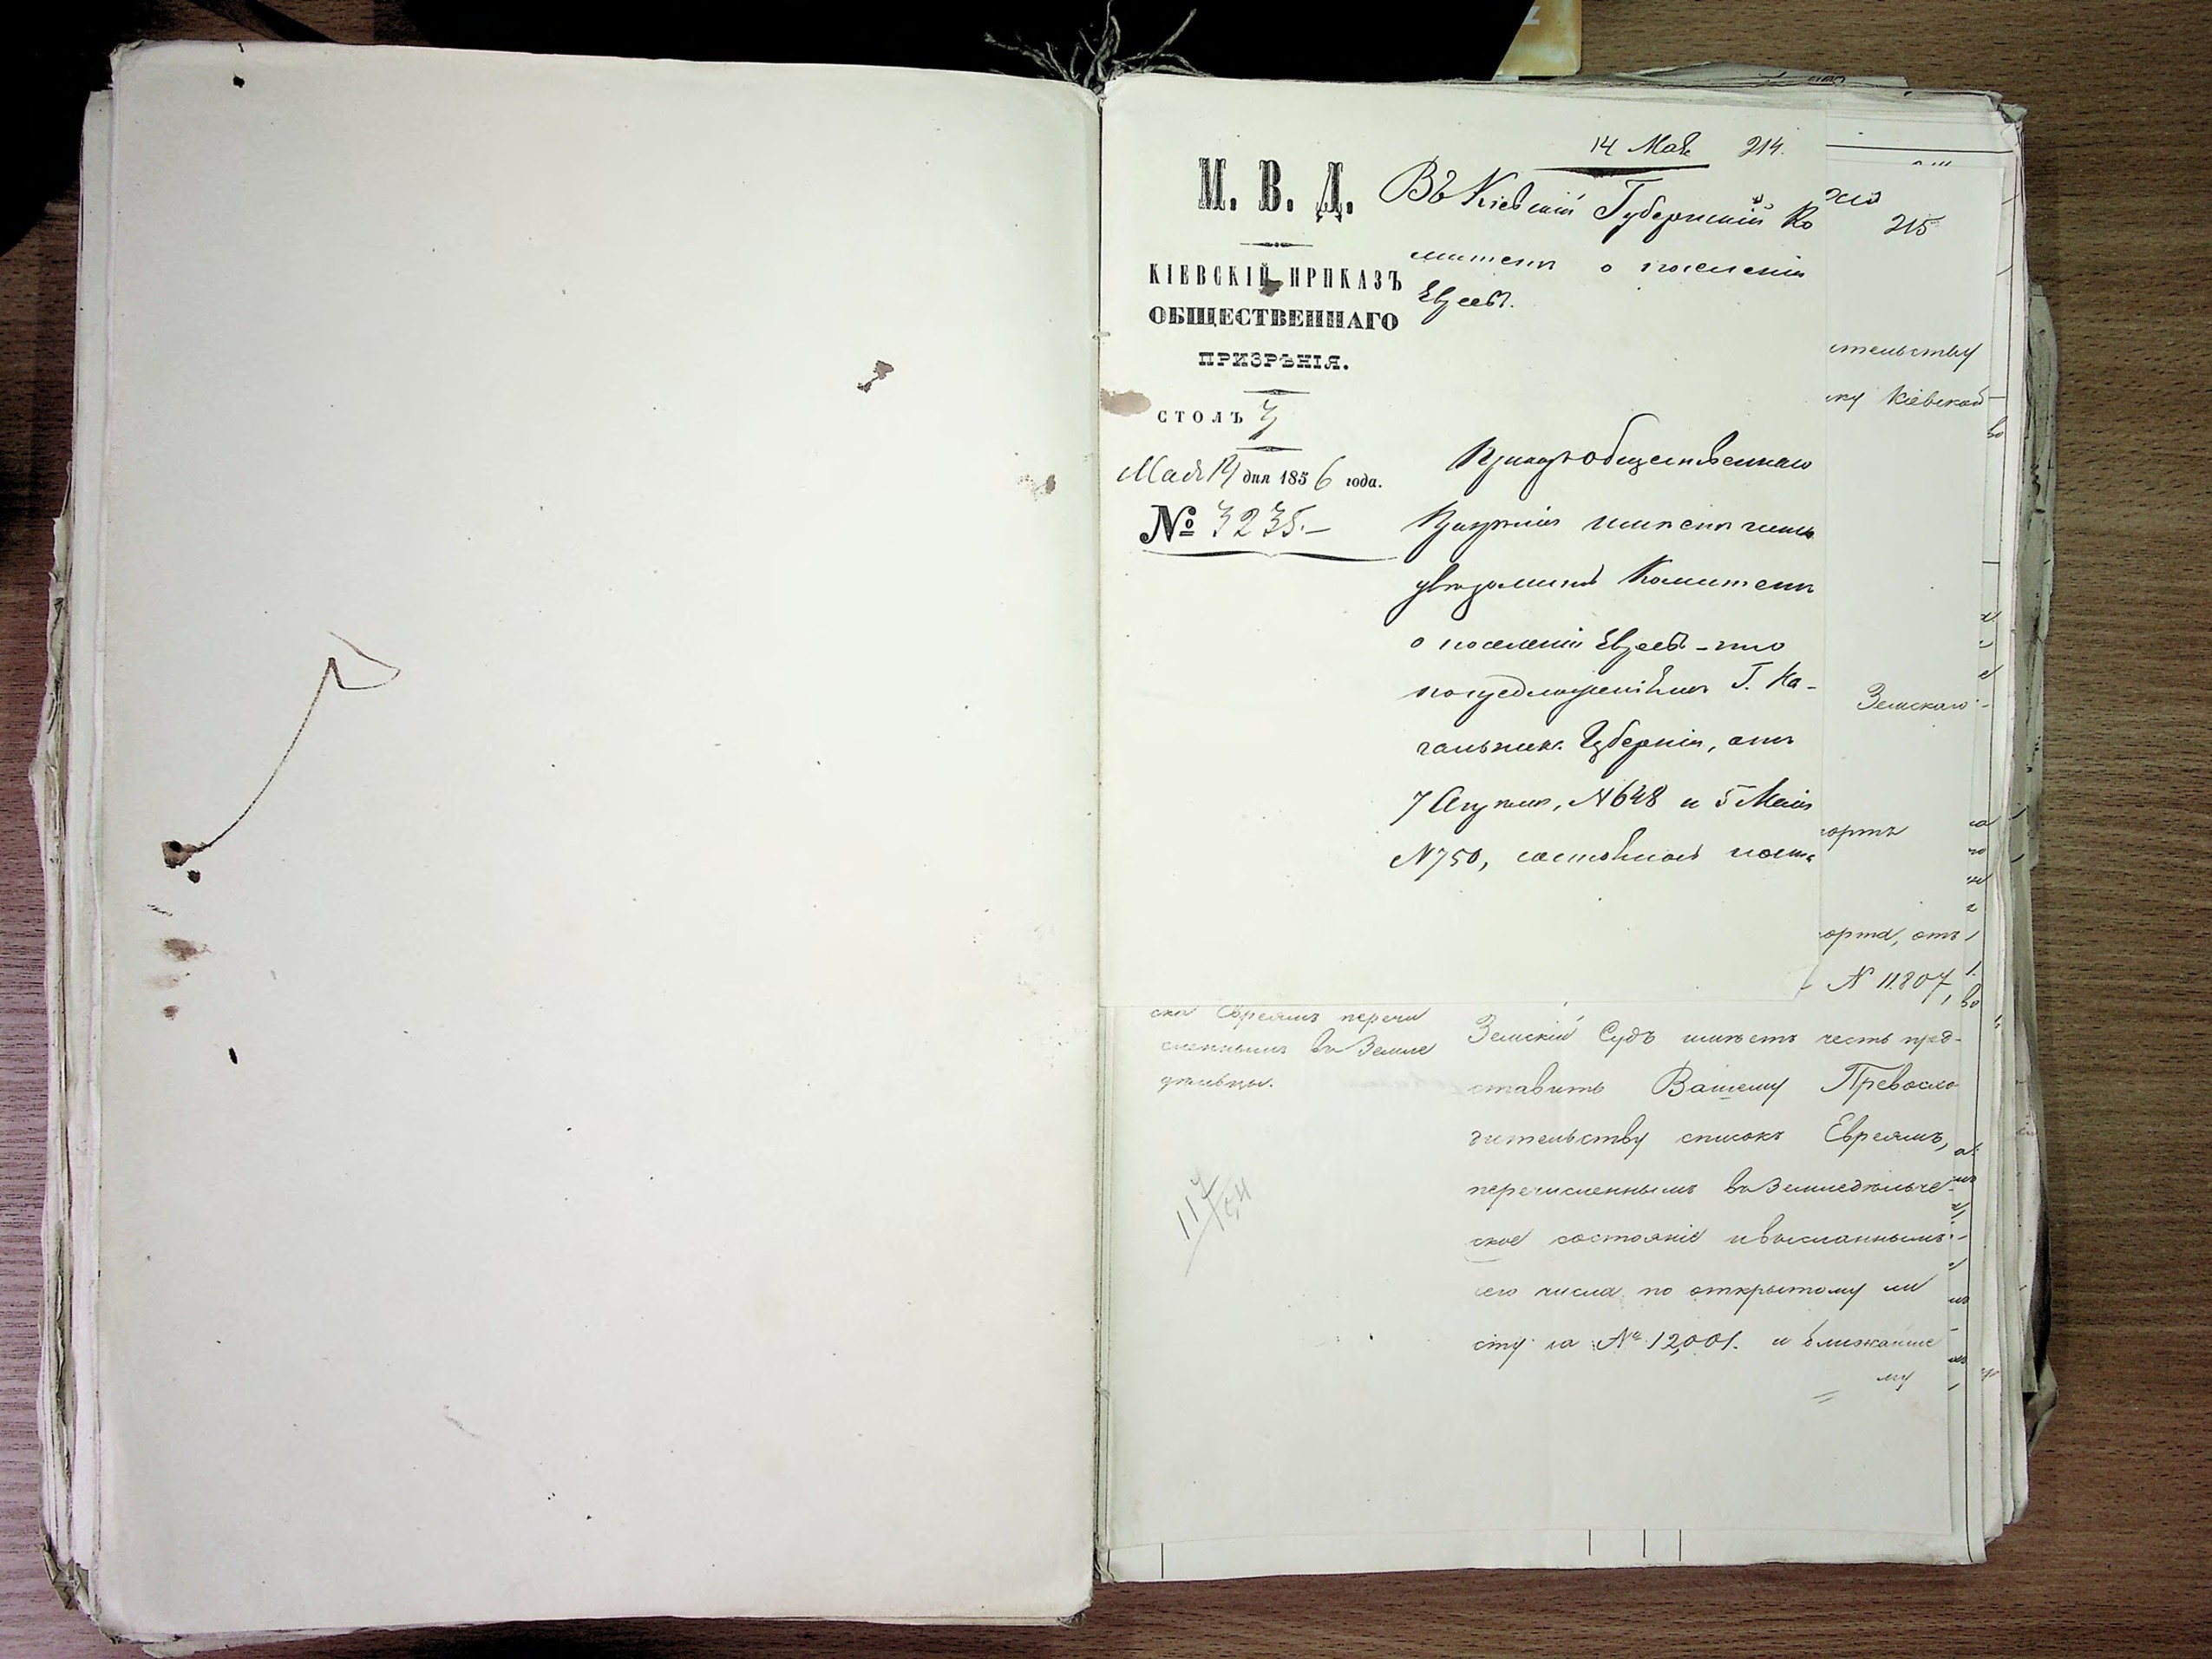 14 Мая 214.
М. В. Д.
КІЕВСКІЙ ПРИКАЗЪ
ОБЩЕСТВЕННАГО
ПРИЗРѢНІЯ.
СТОЛЪ 3
Мая 14 дня 1856 года.
№ 3235.-
Въ Кіевскій Губернскій Ко
митетъ о поселеніи
Евреевъ.
Приказъ Общественнаго
Призрѣнія имѣетъ честь
увѣдомить Комитетъ
о поселеніи Евреевъ - что
по предложеніямъ Г. На-
чальника Губерніи, отъ
7 Апрѣля, N 648 и 5 Маія
N 750,
215
ительству
ику Кіевской
Земскаго
орта, отъ
N 11.807,
ска Евреямъ перечи
сленнымъ въ Земле
дѣльцы.
Земскій Судъ имѣетъ честь пред-
ставить Вашему Превосхо
дительству списокъ Евреямъ,
перечисленнымъ въ Земледѣльче-
ское состояніе и высланнымъ
сего числа по открытому ли
сту за № 12,001. и ближайше
му